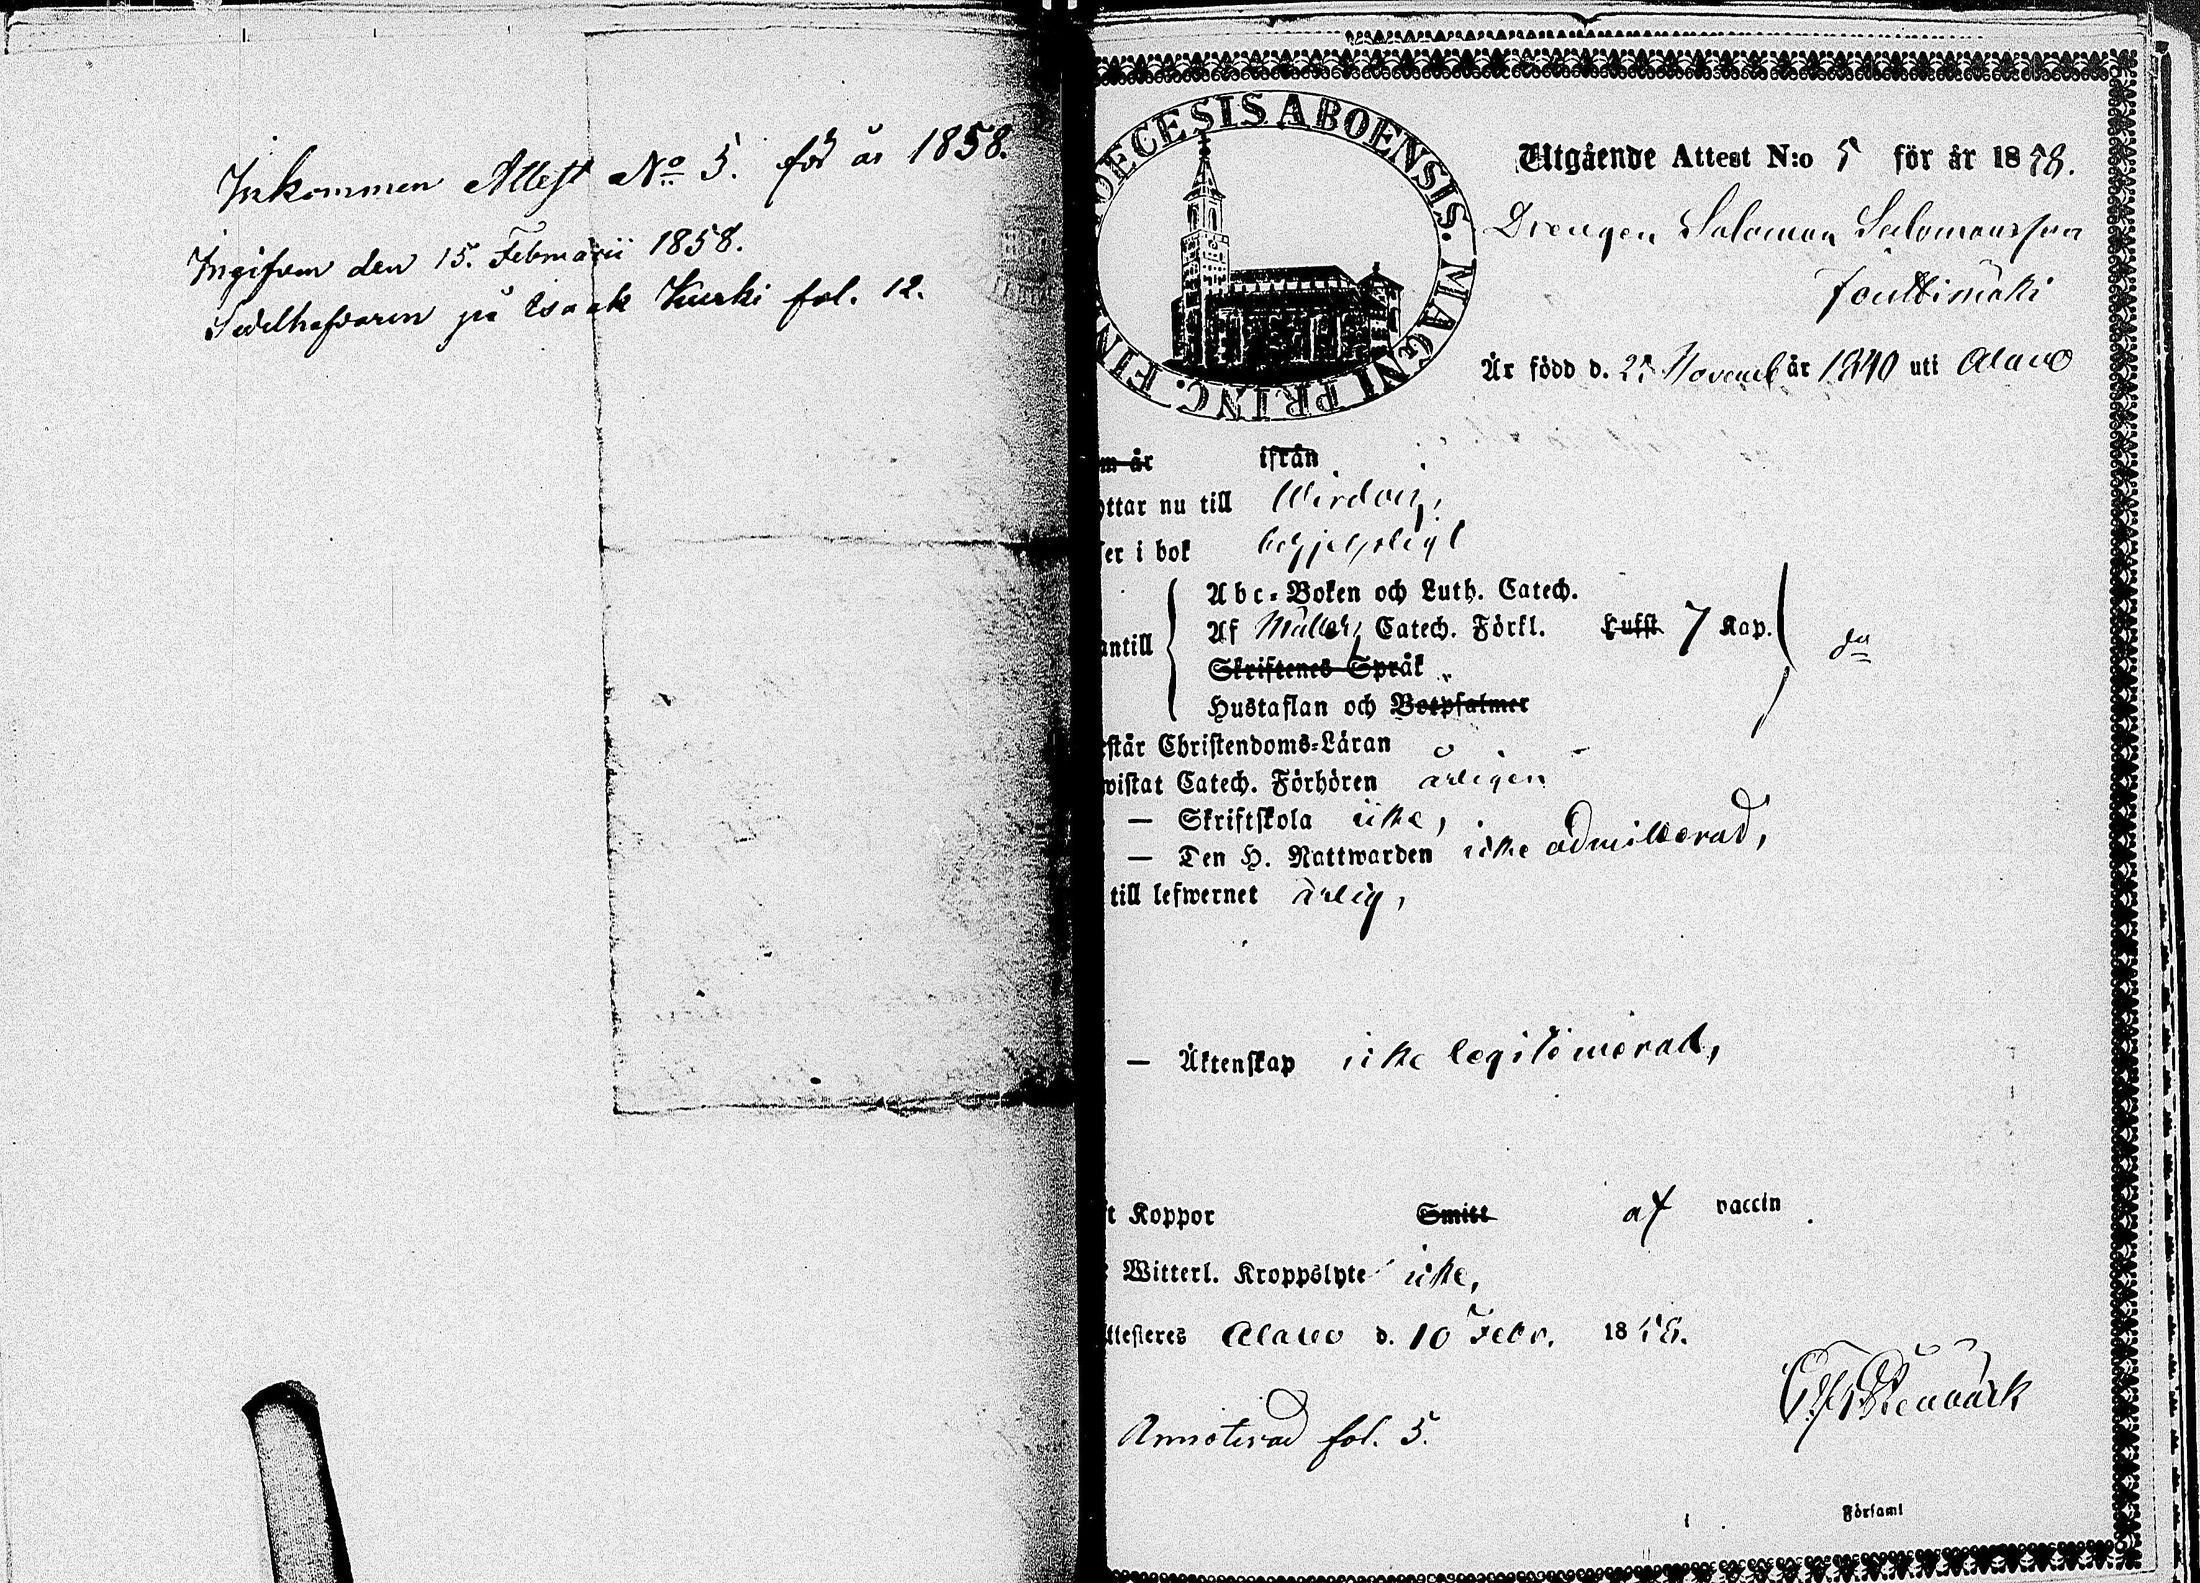 Inkommen Attest No 5. för år 1858.
Ingifven den 15. Februarii 1858.
Sedelhafvaren på Isaak Kurki fol. 12.
DECESIS ABOENSIS. MAGNI PRINC. FIN
Utgående Attest N:o 5 för år 1858.
Drengen Salomon Salomonsson
Jouttimäki
Är född d. 25 Novemb år 1840 uti Alavo
m år ifrån
ottar nu till Wirdois,
ser i bok behjelpligt
antill
Abc-Boken och Luth. Catech.
Af Möllers Catech. Förkl. Lufft 7 Kap. do
Skriftenes Språk
Hustaflan och Botpsalmer
rstår Christendoms-Läran
wistat Catech. Förhören årligen
— Skriftskola icke,
— Den H. Nattwarden icke admitterad,
till lefwernet ärlig,
— Äktenskap icke legitimerad,
t Koppor Smitt af vaccin
Witterl. Kroppslyte icke,
ttesteres Alavo d. 10 Febr. 1858.
Annoterad fol. 5.
Församl